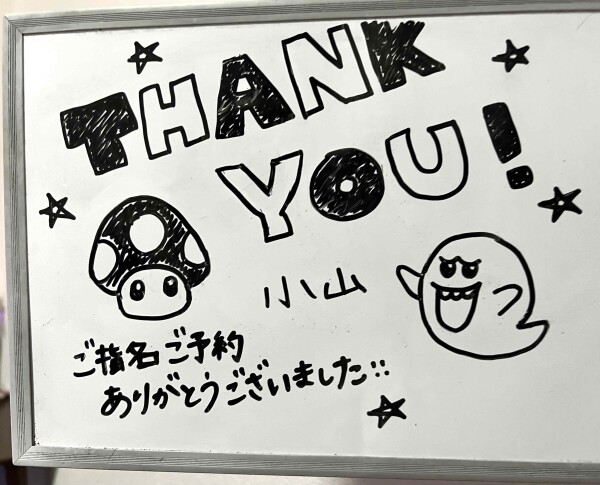 THANK
YOU!
小山
ご指名ご予約
ありがとうございました